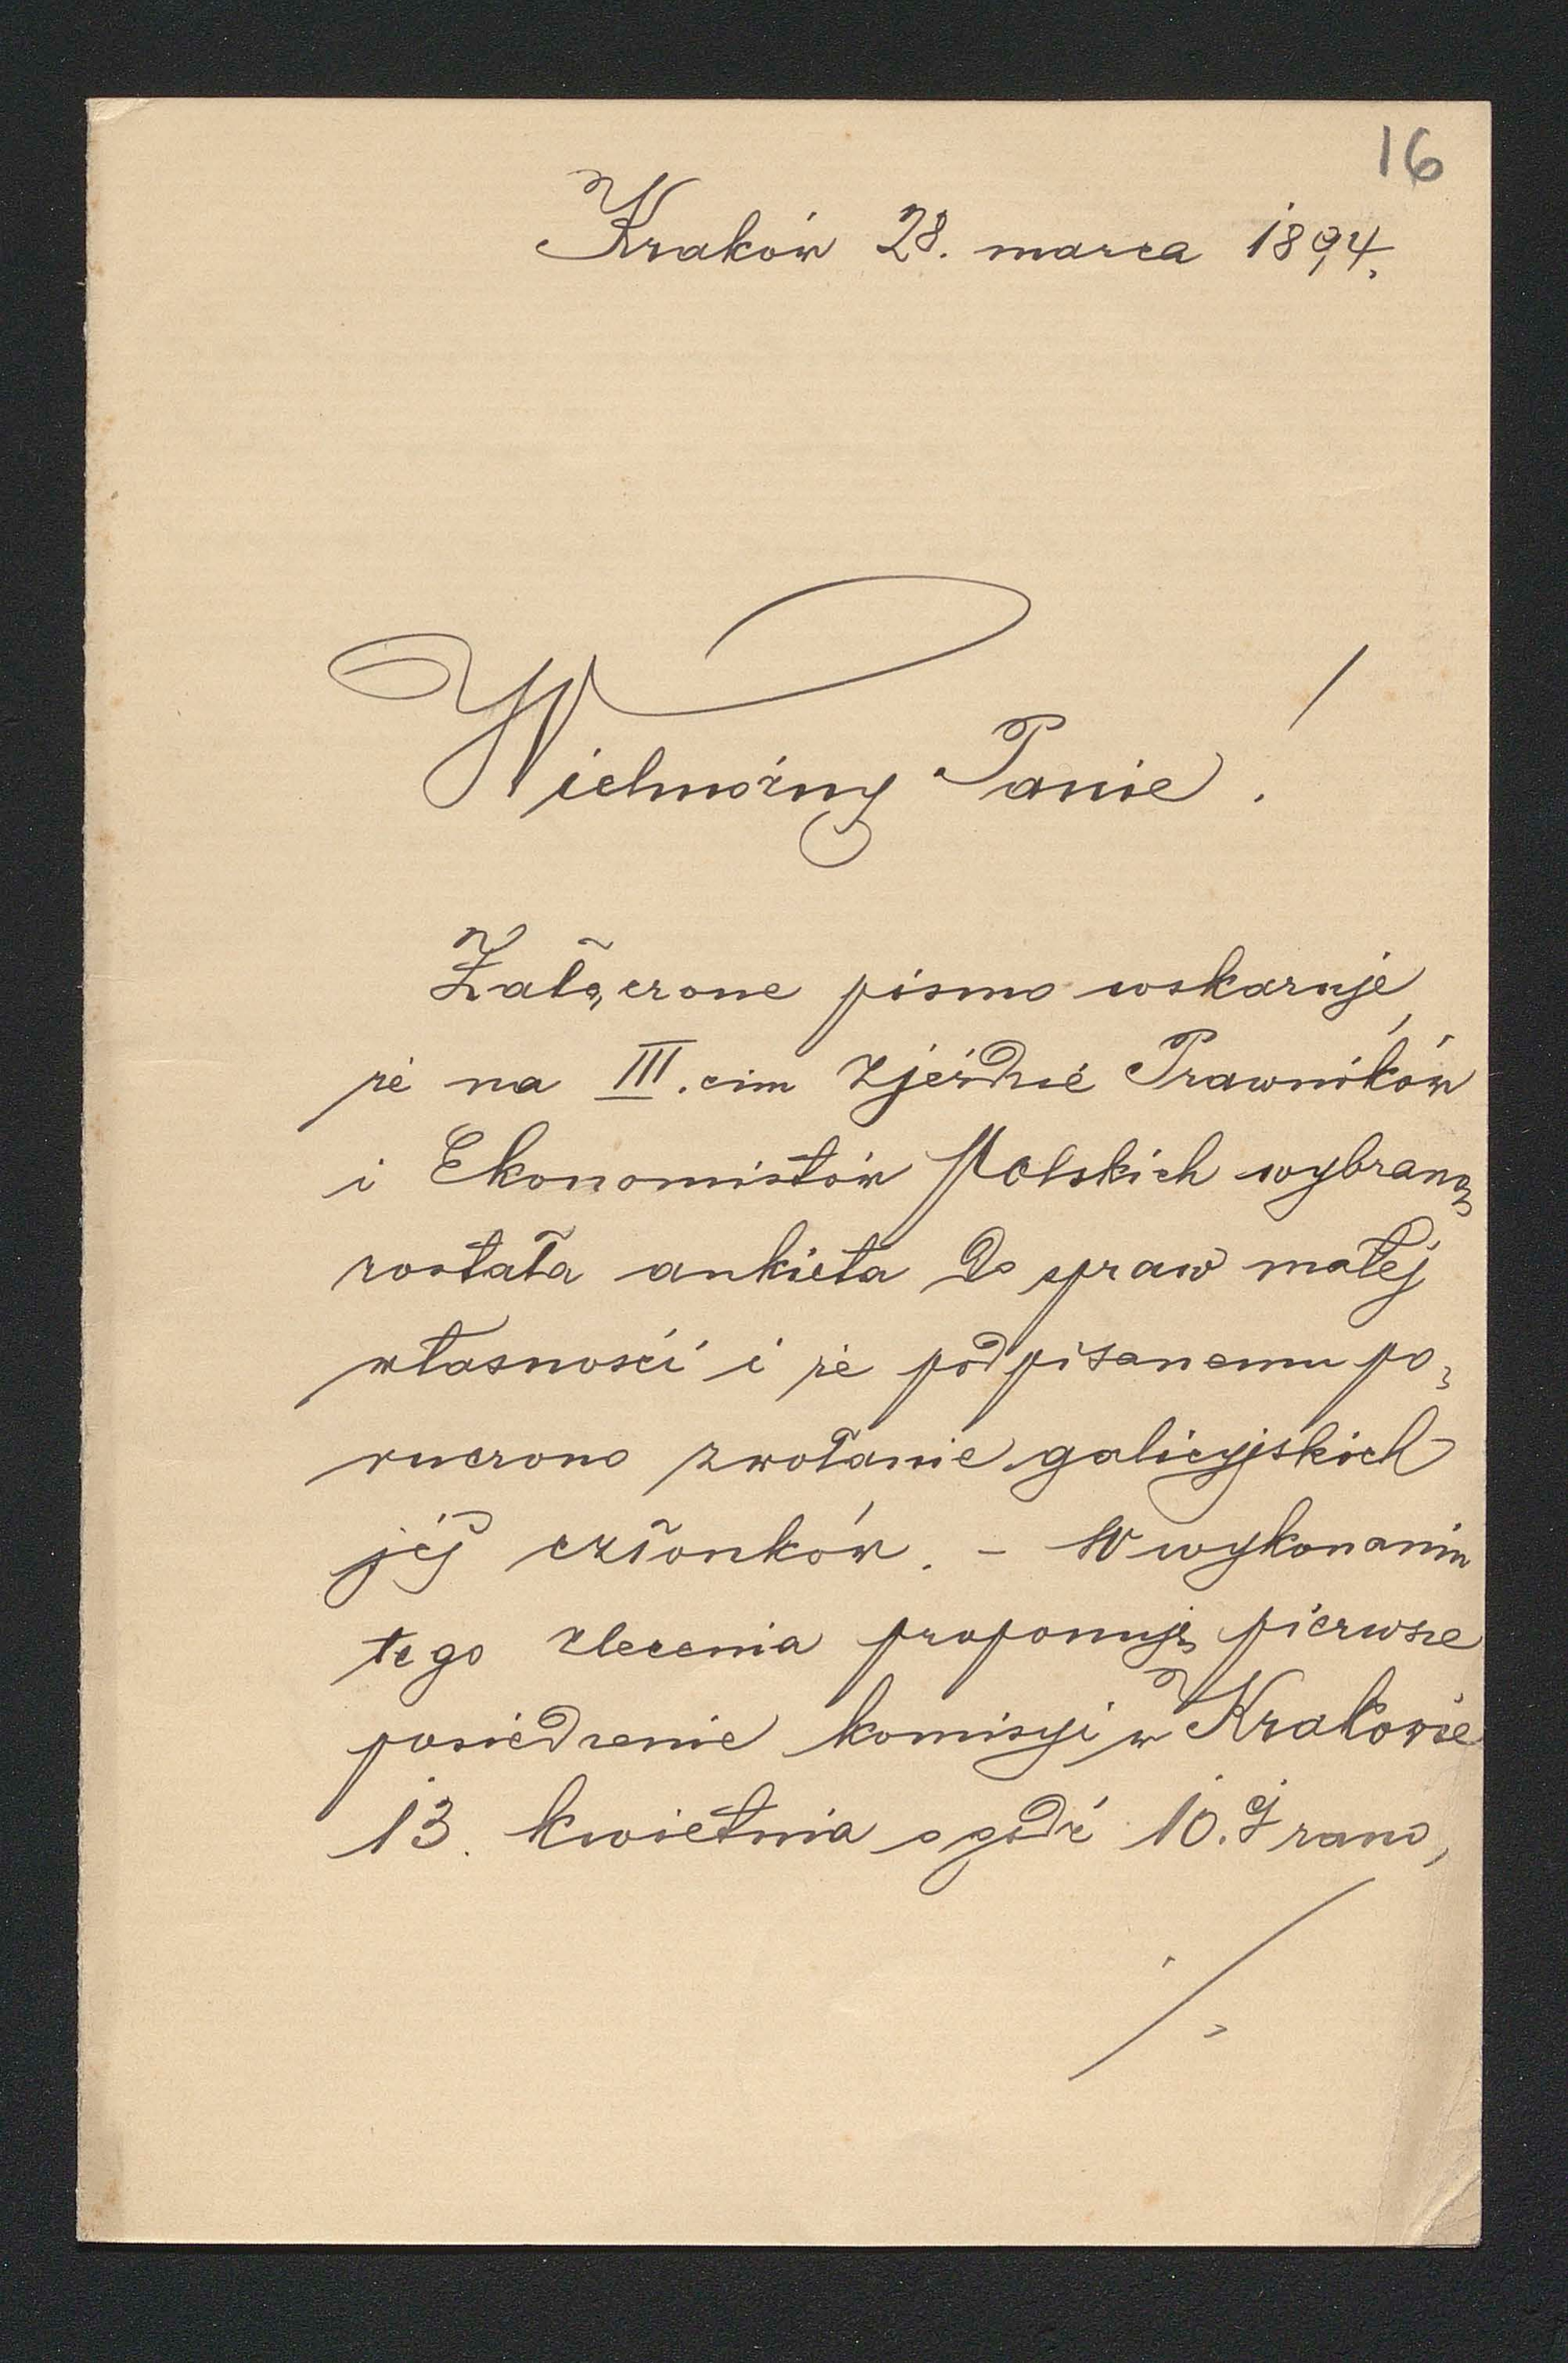 16
Kraków 28. marca 1894.
Wielmożny Panie!
Załączone pismo wskazuje,
że na III.cim Zjeździe Prawników
i Ekonomistów Polskich wybraną
została ankieta do spraw małej
własności i że podpisanemu po,
ruczono zwołanie galicyjskich
jej członków. - W wykonaniu
tego zlecenia proponuję pierwsze
posiedzenie komisyi w Krakowie
13. kwietnia o godz 10.ej rano,
./.